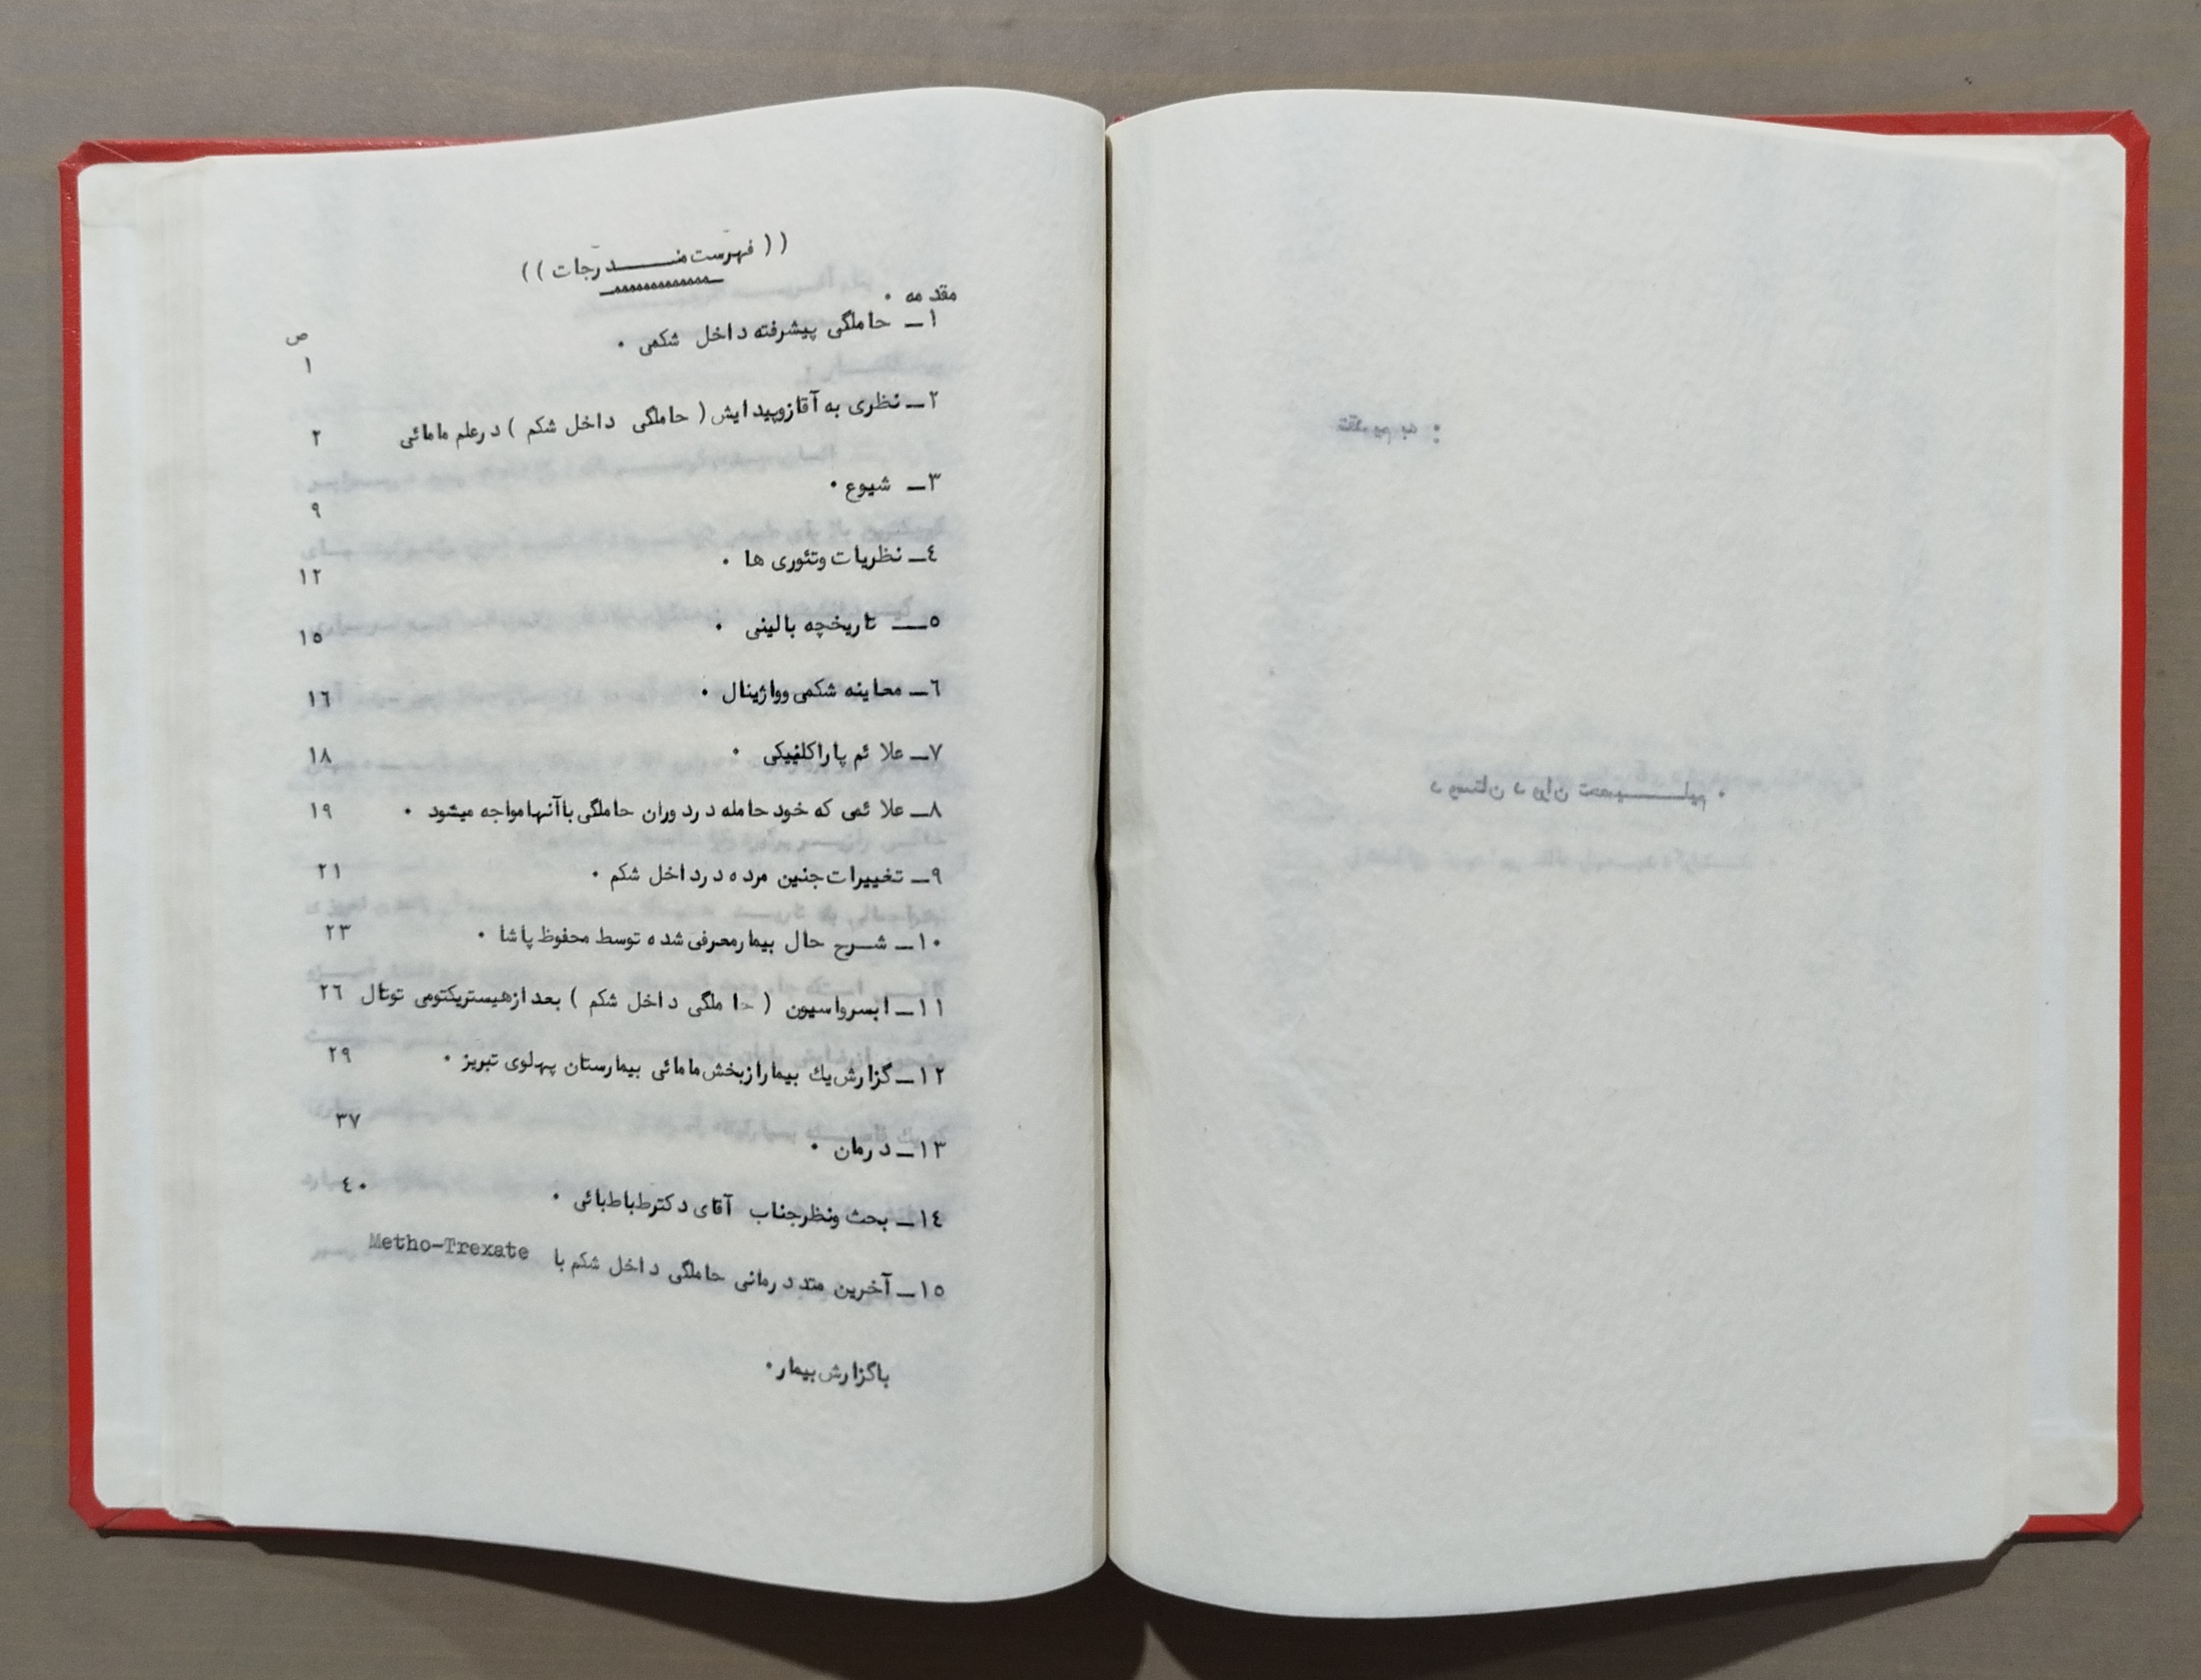 (( فهرست منـــدرجات ))
مقدمه .
ص
۱ـ حاملگی پیشرفته داخل شکمی . ۱
۲ـ نظری به آقازوپیدایش ( حاملگی داخل شکم ) درعلم مامائی ۲
۳ـ شیوع . ۹
٤ـ نظریات وتئوری ها . ۱۲
٥ــ تاریخچه بالینی . ۱٥
٦ـ معاینه شکمی وواژینال . ۱٦
۷ـ علائم پاراکلینیکی . ۱۸
۸ـ علائمی که خود حامله دردوران حاملگی باآنها مواجه میشود . ۱۹
۹ـ تغییرات جنین مرده درداخل شکم . ۲۱
۱۰ـ شـرح حال بیمارمعرفی شده توسط محفوظ پاشا . ۲۳
۱۱ـ ابسرواسیون ( حاملگی داخل شکم ) بعدازهیستریکتومی توتال ۲٦
۱۲ـ گزارش یك بیمارازبخش مامائی بیمارستان پهلوی تبریز . ۲۹
۱۳ـ درمان . ۳۷
۱٤ـ بحث ونظرجناب آقای دکترطباطبائی . ٤۰
۱٥ـ آخرین متددرمانی حاملگی داخل شکم با Metho-Trexate
باگزارش بیمار .
تقدیم به :
دوستان دوران تحصیـــلیم .